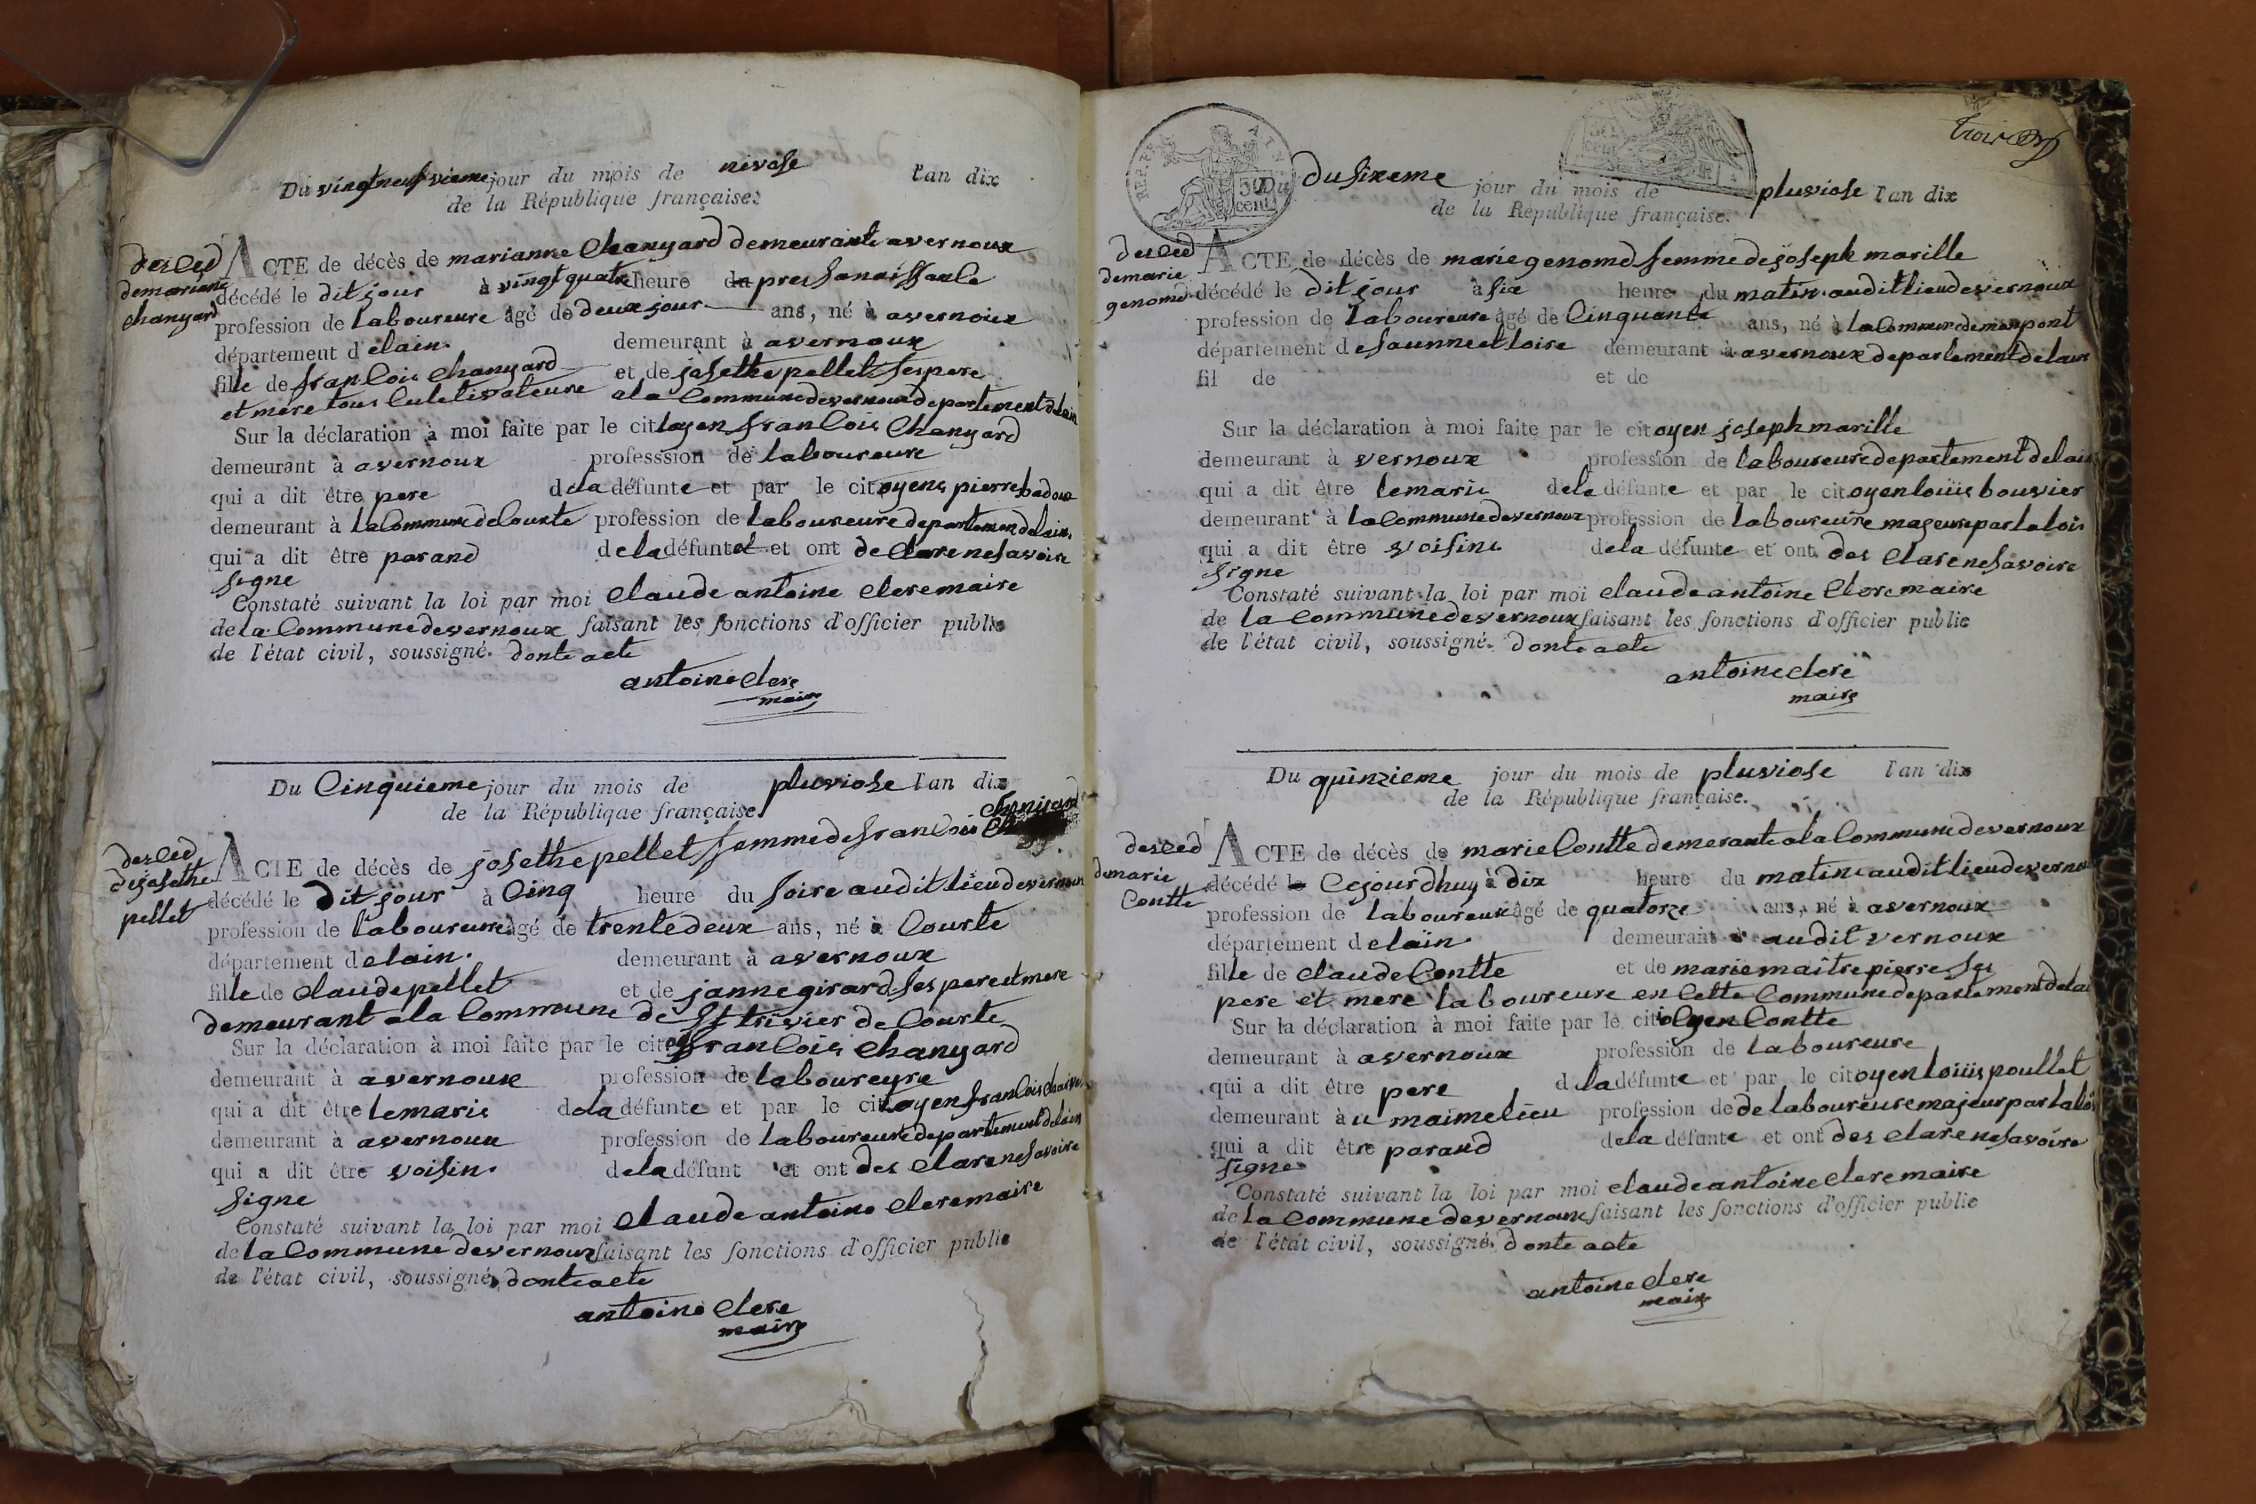 Du vingtneufvieme jour du mois de nivose l'an dix
de la République française.
desced
demariane
chanyard
ACTE de décès de marianne Chanyard demeurante avernoux
décédé le dit jour à vingt quatre heure du pres sanaissanle
profession de laboureure âgé de deux jour ans, né à avernoux
département d elain. demeurant à avernoux
fille de franCois chanyard et de josethe pellet Ses pere
et mere tous Culetivateure ala Commune devernoux departement delain
Sur la déclaration à moi faite par le citoyen franCois Chanyard
demeurant à avernoux professsion de laboureure
qui a dit être pere dela défunte et par le citoyens pierre badoux
demeurant à la Commune de Courte profession de laboureure departemen delain
qui a dit être parand dela défunte et ont de Clare ne Savoire
Signe
Constaté suivant la loi par moi Claude antoine Clere maire
de la Commune devernoux faisant les fonctions d'officier public
de l'état civil, soussigné. donte acte
antoine Clere
maire
Du Cinquieme jour du mois de pluviose l'an dix
de la République française.
desced
dejosethe
pellet
Chanisard
ACTE de décès de josethe pellet femme de franCois
décédé le dit jour à Cinq heure du Soire audit lieu devernoux
profession de laboureure âgé de trente deux ans, né à Courte
département d elain. demeurant à avernoux
fille de Claude pellet et de janne girard Ses pere et mere
demeurant ala Commune de St trivier de Courte
Sur la déclaration à moi faite par le cit franCois Chanyard
demeurant à avernoux profession de laboureyre
qui a dit être le marie dela défunte et par le citoyen franCois
demeurant à avernoux profession de laboureure departement delain
qui a dit être voisin. dela défunt et ont des Clare ne Savoire
Signe
Constaté suivant la loi par moi Claude antoine Clere maire
de la Commune devernoux faisant les fonctions d'officier public
de l'état civil, soussigné, donte acte
antoine Clere
maire
trois
REP. FRA
50
cent
Du du Sixeme jour du mois de pluviose l'an dix
de la République française.
desced
demarie
genomd
ACTE de décès de marie genomd femme de joseph marille
décédé le dit jour à six heure du matin audit lieu devernoux
profession de laboureure âgé de Cinquante ans, né à la Commune demonpont
département de Saunne et loire demeurant à avernoux departement delain
fil de et de
Sur la déclaration à moi faite par le citoyen joseph marille
demeurant à vernoux profession de laboureure departement delain
qui a dit être le marie dela défunte et par le citoyen louis bouvier
demeurant à la Commune devernoux profession de laboureure majeure par la loi
qui a dit être voisine dela défunte et ont des Clare ne Savoire
Signe
Constaté suivant la loi par moi Claude antoine Clere maire
de la Commune devernoux faisant les fonctions d'officier public
de l'état civil, soussigné. donte acte
antoine clere
maire
Du quinzieme jour du mois de pluviose l'an dix
de la République française.
desced
demarie
Contte
ACTE de décès de marie Contte demerante ala Commune devernoux
décédé le Cejourdhuy à dix heure du matin audit lieu devernoux
profession de laboureure âgé de quatorze ans, né à avernoux
département d elain demeurant à audit vernoux
fille de Claude Contte et de marie maître pierre Ses
pere et mere laboureure en Cette Commune departement delain
Sur la déclaration à moi faite par le citoyen Contte
demeurant à avernoux profession de laboureure
qui a dit être pere d la défunte et par le citoyen louis poullet
demeurant à u maime lieu profession de de laboureure majeur par la loi
qui a dit être parand dela défunte et ont des Clare ne Savoire
Signe
Constaté suivant la loi par moi Claude antoine Clere maire
de la Commune devernoux faisant les fonctions d'officier public
de l'état civil, soussigné. donte acte
antoine Clere
maire